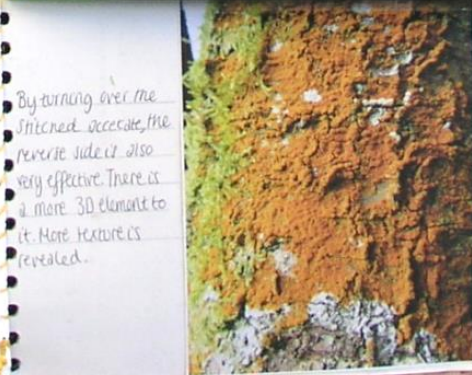 By turning over the
stitched accetate, the
reverse side is also
very effective. There is
a more 3D element to
it. More texture is
revealed.